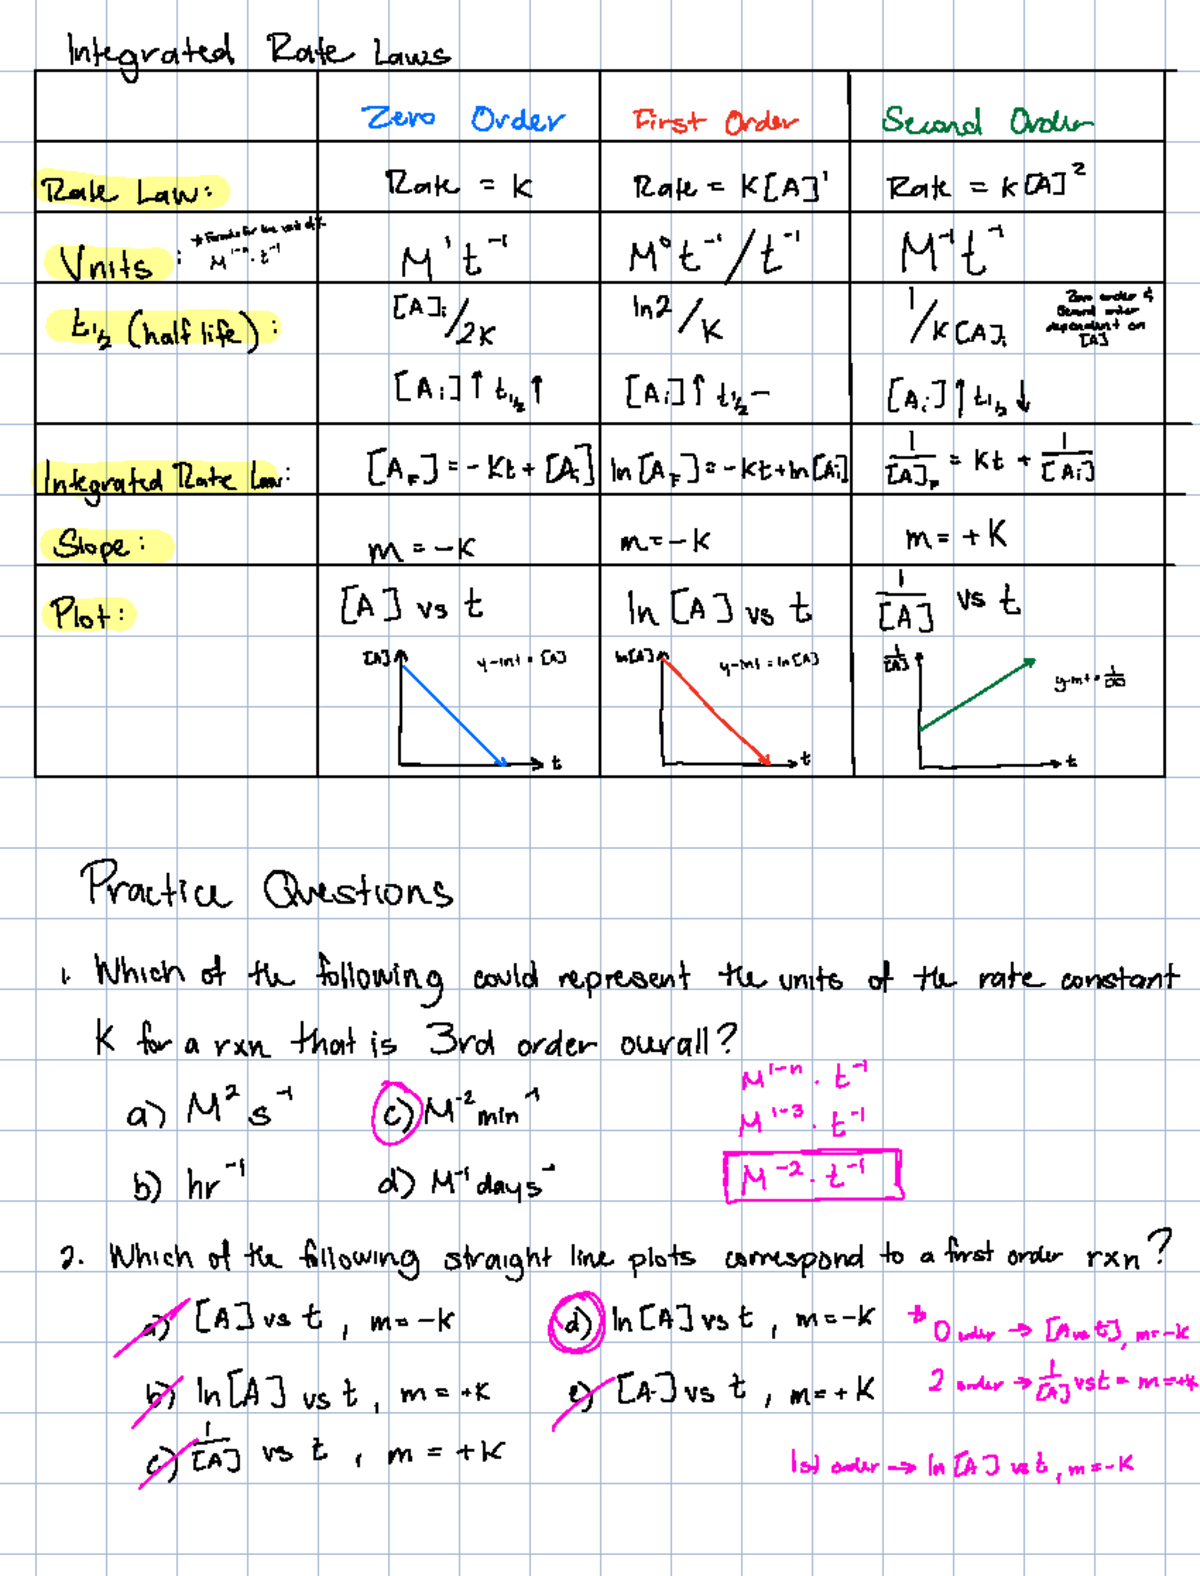 Integrated Rate Laws
Zero Order First Order Second Order
Rate Law: Rate = K Rate = K[A]¹ Rate = K[A]²
Units : * Formula for the unit of K M¹⁻ⁿ · t⁻¹ M¹t⁻¹ M⁰t⁻¹/t⁻¹ M⁻¹t⁻¹
t½ (half life) : [A]i/2K ln2/K 1/K[A]i Zero order & Second order dependent on [A]
[Ai]↑ t½↑ [Ai]↑ t½– [Ai]↑ t½↓
Integrated Rate Law: [AF] = -Kt + [Ai] ln[AF] = -Kt + ln[Ai] 1/[A]F = Kt + 1/[Ai]
Slope: m = -K m = -K m = +K
Plot: [A] vs t ln [A] vs t 1/[A] vs t
[A] y-int = [A] t ln[A] y-int = ln[A] t 1/[A] y-int = 1/[A] t
Practice Questions
1. Which of the following could represent the units of the rate constant
K for a rxn that is 3rd order overall?
a) M² s⁻¹ c) M⁻² min⁻¹
b) hr⁻¹ d) M⁻¹ days⁻
M¹⁻ⁿ · t⁻¹
M¹⁻³ · t⁻¹
M⁻² · t⁻¹
2. Which of the following straight line plots correspond to a first order rxn?
a) [A] vs t , m = -K d) ln[A] vs t , m = -K
b) ln[A] vs t , m = +K e) [A] vs t , m = +K
c) 1/[A] vs t , m = +K
* 0 order → [A vs t], m = -K
2 order → 1/[A] vs t = m = +K
1st order → ln [A] vs t, m = -K